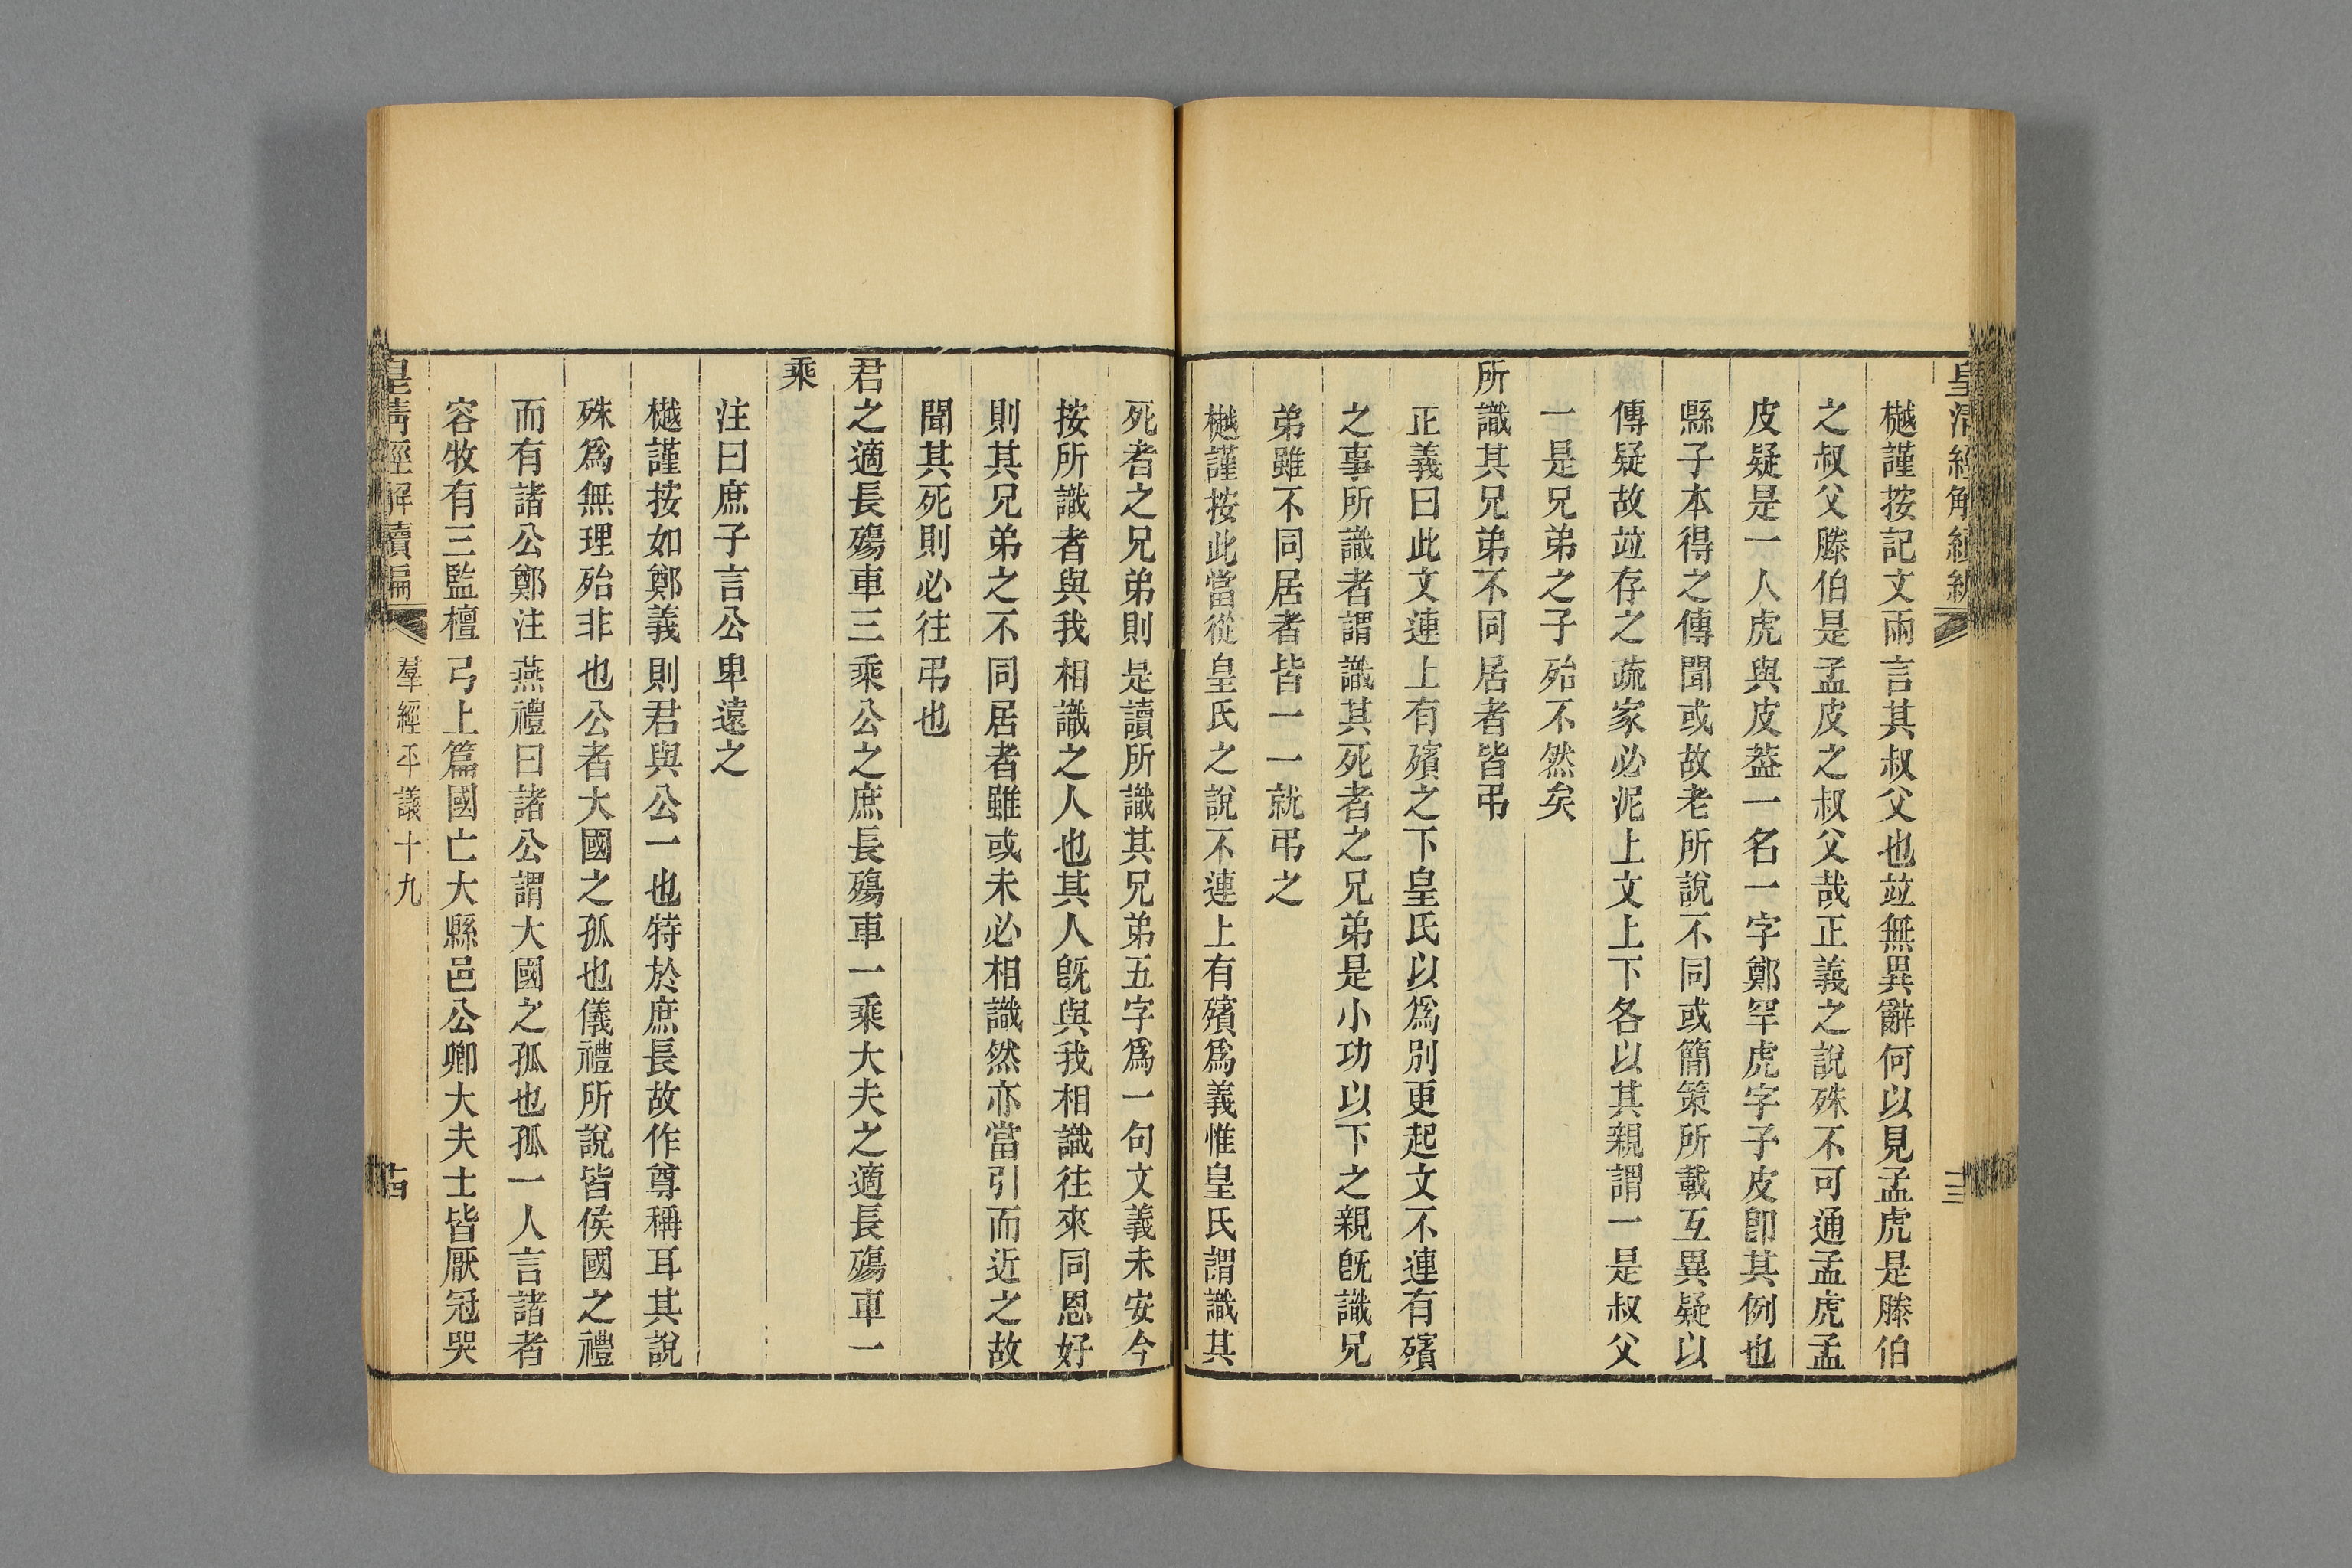 皇清經解續編
十三
樾謹按記文兩言其叔父也竝無異辭何以見孟虎是滕伯
之叔父滕伯是孟皮之叔父哉正義之說殊不可通孟虎孟
皮疑是一人虎與皮葢一名一字鄭罕虎字子皮卽其例也
縣子本得之傳聞或故老所說不同或簡策所載互異疑以
傳疑故竝存之疏家必泥上文上下各以其親謂一是叔父
一是兄弟之子殆不然矣
所識其兄弟不同居者皆弔
正義曰此文連上有殯之下皇氏以爲別更起文不連有殯
之事所識者謂識其死者之兄弟是小功以下之親旣識兄
弟雖不同居者皆一一就弔之
樾謹按此當從皇氏之說不連上有殯爲義惟皇氏謂識其
死者之兄弟則是讀所識其兄弟五字爲一句文義未安今
按所識者與我相識之人也其人旣與我相識往來同恩好
則其兄弟之不同居者雖或未必相識然亦當引而近之故
聞其死則必往弔也
君之適長殤車三乘公之庶長殤車一乘大夫之適長殤車一
乘
注曰庶子言公卑遠之
樾謹按如鄭義則君與公一也特於庶長故作尊稱耳其說
殊爲無理殆非也公者大國之孤也儀禮所說皆侯國之禮
而有諸公鄭注燕禮曰諸公謂大國之孤也孤一人言諸者
容牧有三監檀弓上篇國亡大縣邑公卿大夫士皆厭冠哭
皇淸經解續編
羣經平議十九
十四